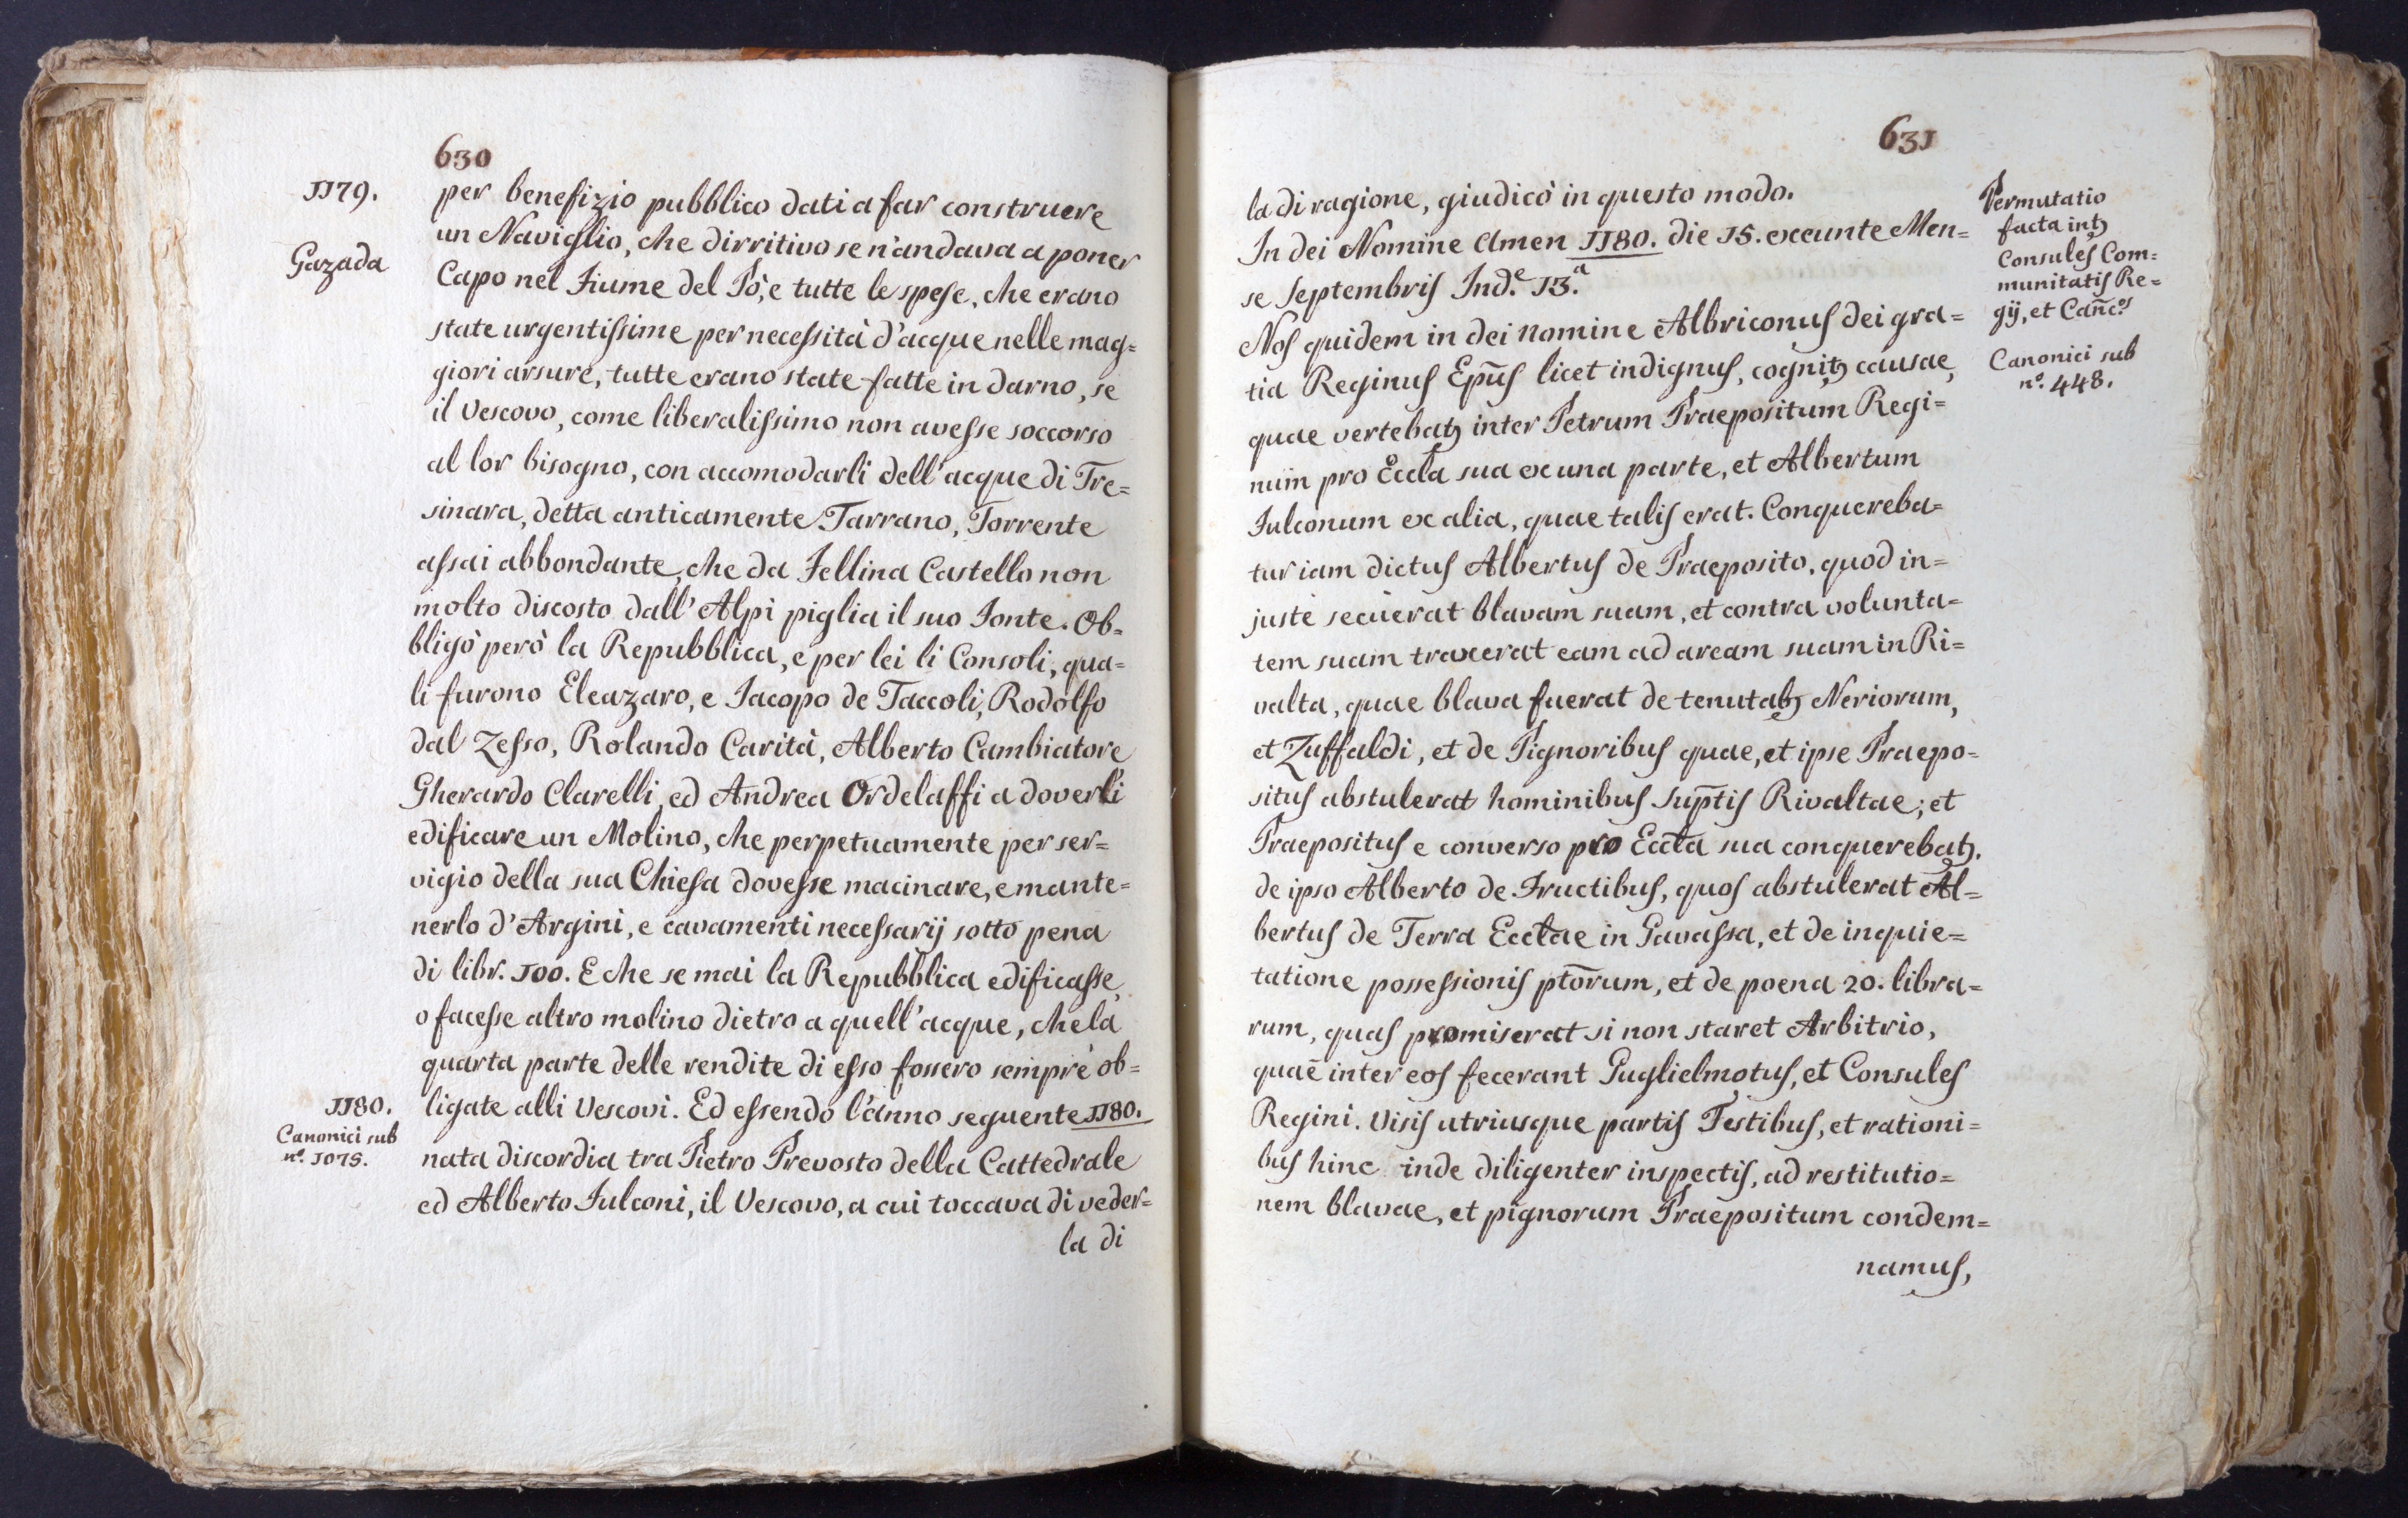 630
1179.
Gazada
per benefizio pubblico dati a far construere
un Naviglio, che dirritivo se n'andava a poner
Capo nel Fiume del Pò, e tutte le spese, che erano
state urgentissime per necessità d'acque nelle mag=
giori arsure, tutte erano state fatte in darno, se
il Vescovo, come liberalissimo non avesse soccorso
al lor bisogno, con accomodarli dell'acque di Tre=
sinara, detta anticamente Tarrano, Torrente
assai abbondante, che da Fellina Castello non
molto discosto dall'Alpi piglia il suo Fonte. Ob=
bligò però la Repubblica, e per lei li Consoli, qua=
li furono Eleazaro, e Iacopo de Taccoli, Rodolfo
dal Zesso, Rolando Carità, Alberto Cambiatore
Gherardo Clarelli, ed Andrea Ordelaffi a doverli
edificare un Molino, che perpetuamente per ser=
vigio della sua Chiesa dovesse macinare, e mante=
nerlo d'Argini, e cavamenti necessarij sotto pena
di libr. 100. E che se mai la Repubblica edificasse,
o facesse altro molino dietro a quell'acque, che la
quarta parte delle rendite di esso fossero sempre ob=
1180.
Canonici sub
n.º 1075.
ligate alli Vescovi. Ed essendo l'anno seguente 1180.
nata discordia tra Pietro Prevosto della Cattedrale
ed Alberto Fulconi, il Vescovo, a cui toccava di veder=
la di
631
la di ragione, giudicò in questo modo.
In dei Nomine Amen 1180. die 15. exeunte Men=
se Septembris Ind.e 13.a
Nos quidem in dei nomine Albriconus dei gra=
tia Reginus Ep̃us licet indignus, cognitꝫ causae,
quae vertebatꝫ inter Petrum Praepositum Regi=
num pro Eccla sua ex una parte, et Albertum
Fulconum ex alia, quae talis erat. Conquereba=
tur iam dictus Albertus de Praeposito, quod in=
juste secuerat blavam suam, et contra volunta=
tem suam traxerat eam ad aream suam in Ri=
valta, quae blava fuerat de tenutabꝫ Neriorum,
et Zuffaldi, et de Pignoribus quae, et ipse Praepo=
situs abstulerat hominibus sup̃tis Rivaltae; et
Praepositus e converso pro Eccla sua conquerebatꝫ.
de ipso Alberto de Fructibus, quos abstulerat Al=
bertus de Terra Ecclae in Gavassa, et de inquie=
tatione possessionis ptõrum, et de poena 20. libra=
rum, quas promiserat si non staret Arbitrio,
quaē inter eos fecerant Guglielmotus, et Consules
Regini. Visis utriusque partis Testibus, et rationi=
bus hinc inde diligenter inspectis, ad restitutio=
nem blavae, et pignorum Praepositum condem=
namus,
Permutatio
facta intꝫ
Consules Com=
munitatis Re=
gij, et Cañc.os
Canonici sub
n.º 448.